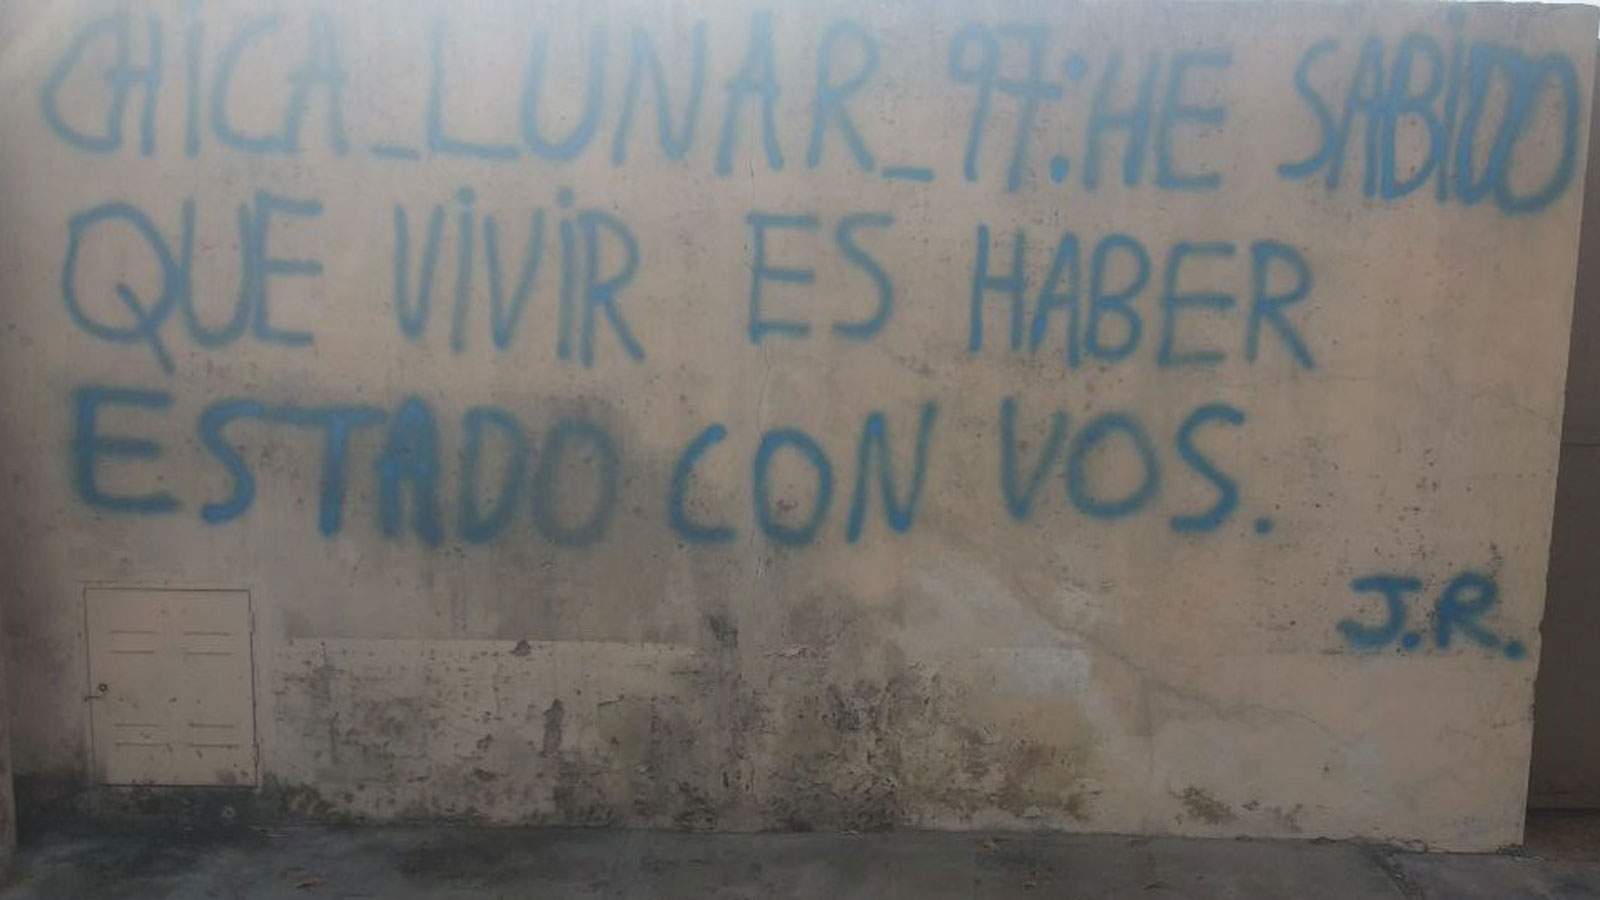 CHiCA_LUNAR_97:HE SABiDO
QUE ViViR ES HABER
ESTADO CON VOS.
J.R.